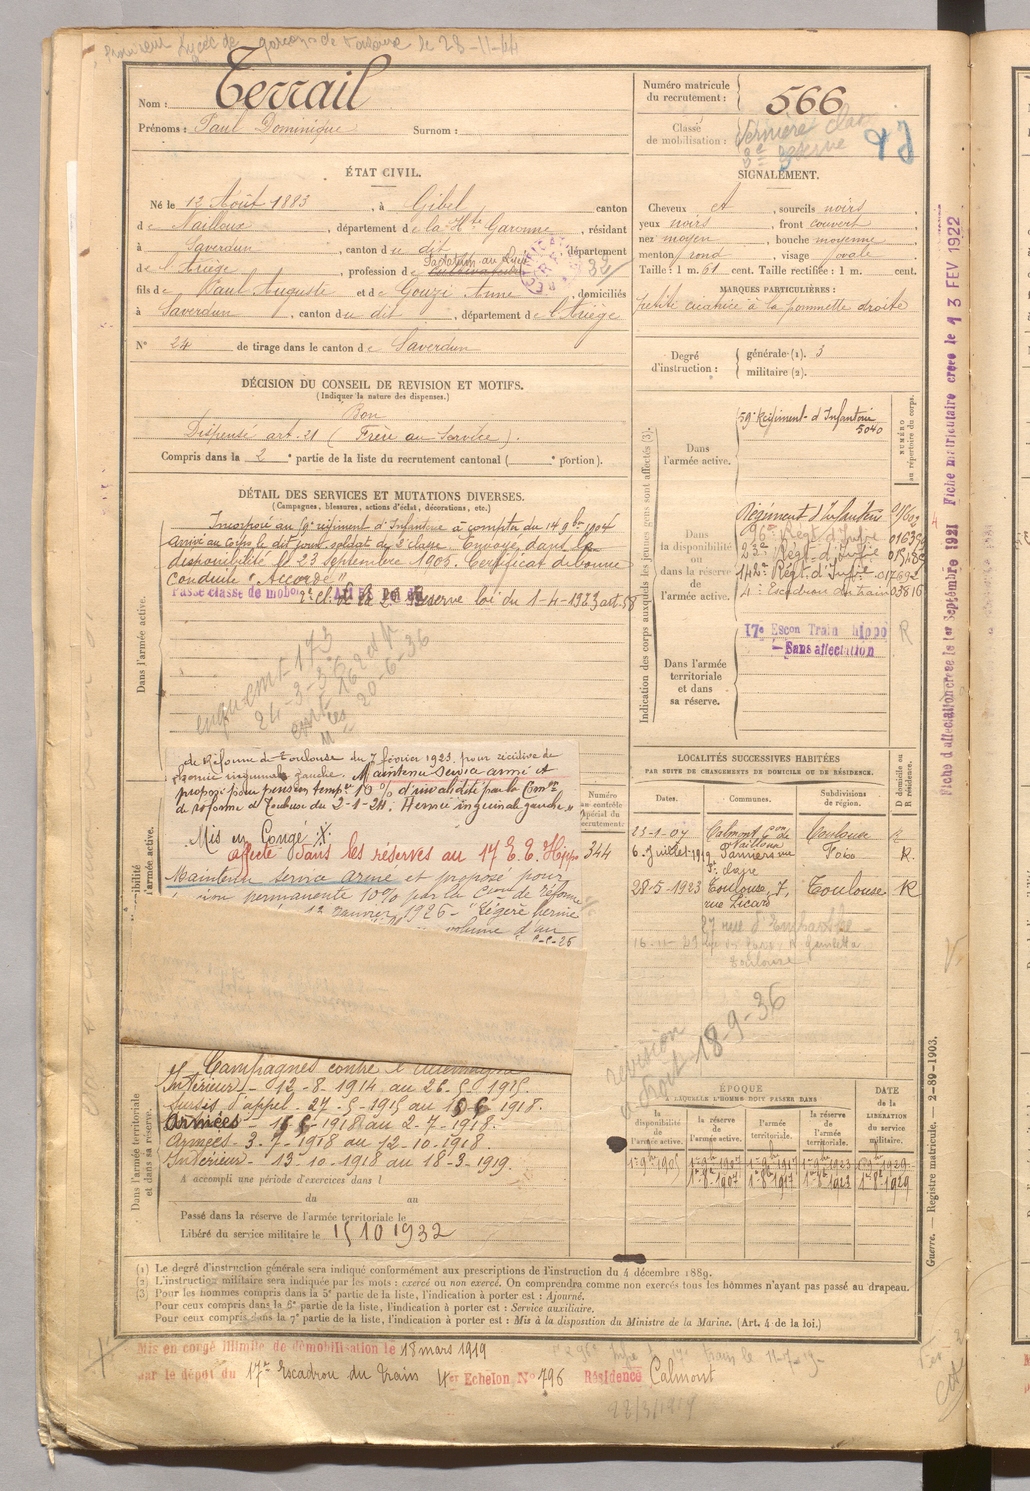 Lycée de garçons de Toulouse le 28-11-44
Nom : Terrail
Prénoms : Paul Dominique Surnom :
Numéro matricule du recrutement : 566
Classe de mobilisation : Dernière classe 2e Réserve
ÉTAT CIVIL.
Né le 12 Août 1883, à Gibel canton
de Nailloux, département de la Hte Garonne, résidant
à Saverdun, canton du dit, département
de l'Ariège, profession de cultivateur
fils de Paul Auguste et de Gouzi Anne, domiciliés
à Saverdun, canton du dit, département de l'Ariège
N° 24 de tirage dans le canton de Saverdun
SIGNALEMENT.
Cheveux et, sourcils noirs,
yeux noirs, front couvert,
nez moyen, bouche moyenne,
menton rond, visage ovale,
Taille : 1 m. 61 cent. Taille rectifiée : 1 m. cent.
MARQUES PARTICULIÈRES :
petite cicatrice à la pommette droite
Degré d'instruction : générale (1). 3
militaire (2).
DÉCISION DU CONSEIL DE REVISION ET MOTIFS.
(Indiquer la nature des dispenses.)
Bon
Dispensé art. 21 (Frère au service).
Compris dans la 2e partie de la liste du recrutement cantonal ( e portion).
DÉTAIL DES SERVICES ET MUTATIONS DIVERSES.
(Campagnes, blessures, actions d'éclat, décorations, etc.)
Dans l'armée active.
Incorporé au 9e régiment d'Infanterie à compter du 14 9bre 1904
arrivé au Corps le dit jour, soldat de 2e classe. Envoyé dans la
disponibilité le 23 septembre 1905. Certificat de bonne
conduite "Accordé"
Passé classe de mobon 2e Cl. de la 2e Réserve loi du 1-4-1923 art. 58
24-3-3
20-6-36
de Réforme de Toulouse du 7 février 1923 pour récidive de
hernie inguinale gauche. Maintenu service armé et
proposé pour pension tempre 10 % d'invalidité par la Comon
de réforme de Toulouse du 2-1-24. Hernie inguinale gauche"
Mis en Congé
affecté dans les réserves au 17 E. T. Hippo
Maintenu service armé et proposé pour
permanente 10% par la Cion de réforme
12 Janvier 1926 - Légère hernie
volume d'un
Indication des corps auxquels les jeunes gens sont affectés (3).
NUMÉRO au répertoire du corps.
Dans l'armée active.
59e Régiment d'Infanterie 5040
Dans la disponibilité ou dans la réserve de l'armée active.
Régiment d'Infanterie
96e Régt d'Infie
Régt d'Infie
142e Régt d'Infie 017692
Escadron du train 03816
17e Escon Train hippo R
Sans affectation
Dans l'armée territoriale et dans sa réserve.
LOCALITÉS SUCCESSIVES HABITÉES
PAR SUITE DE CHANGEMENTS DE DOMICILE OU DE RÉSIDENCE.
Dates. Communes. Subdivisions de région. D domicile ou R résidence.
Numéro au contrôle spécial du recrutement
344
23-1-07 Calmont Con de Nailloux Toulouse R
6 Juillet 1919 Pamiers Foix R.
28-5-1923 Toulouse, 7, rue Ricard Toulouse R
27 rue d'Embarthe
Toulouse
revision
18-9-36
Campagnes contre l'Allemagne
Intérieur - 12-8-1914 au 26-5-1915.
Sursis d'appel - 27-5-1915 au 1918.
Armées - 1918 au 2-7-1918.
Armées - 3-7-1918 au 12-10-1918
Intérieur - 13-10-1918 au 18-3-1919.
Dans l'armée territoriale et dans sa réserve.
A accompli une période d'exercices dans l
du au
Passé dans la réserve de l'armée territoriale le
Libéré du service militaire le 15 10 1932
ÉPOQUE
À LAQUELLE L'HOMME DOIT PASSER DANS
la disponibilité de l'armée active. la réserve de l'armée active. l'armée territoriale. la réserve de l'armée territoriale. DATE de la LIBÉRATION du service militaire.
1er 9bre 1905 1er 9bre 1907 1er 9bre 1917 1er 9bre 1923 1er 9bre 1929
1er 8bre 1907 1er 8bre 1917 1er 8bre 1923 1er 8bre 1929
(1) Le degré d'instruction générale sera indiqué conformément aux prescriptions de l'instruction du 4 décembre 1889.
(2) L'instruction militaire sera indiquée par les mots : exercé ou non exercé. On comprendra comme non exercés tous les hommes n'ayant pas passé au drapeau.
(3) Pour les hommes compris dans la 5e partie de la liste, l'indication à porter est : Ajourné.
Pour ceux compris dans la 6e partie de la liste, l'indication à porter est : Service auxiliaire.
Pour ceux compris dans la 7e partie de la liste, l'indication à porter est : Mis à la disposition du Ministre de la Marine. (Art. 4 de la loi.)
Mis en congé illimité de démobilisation le 18 mars 1919
par le dépôt du 17e Escadron du Train 4er Echelon N° 796 Résidence Calmont
28/3/1919
Fiche d'affectation créée le 1er Septembre 1921 Fiche matriculaire créée le 13 FEV 1922
Guerre. — Registre matricule. — 2-89-1903.